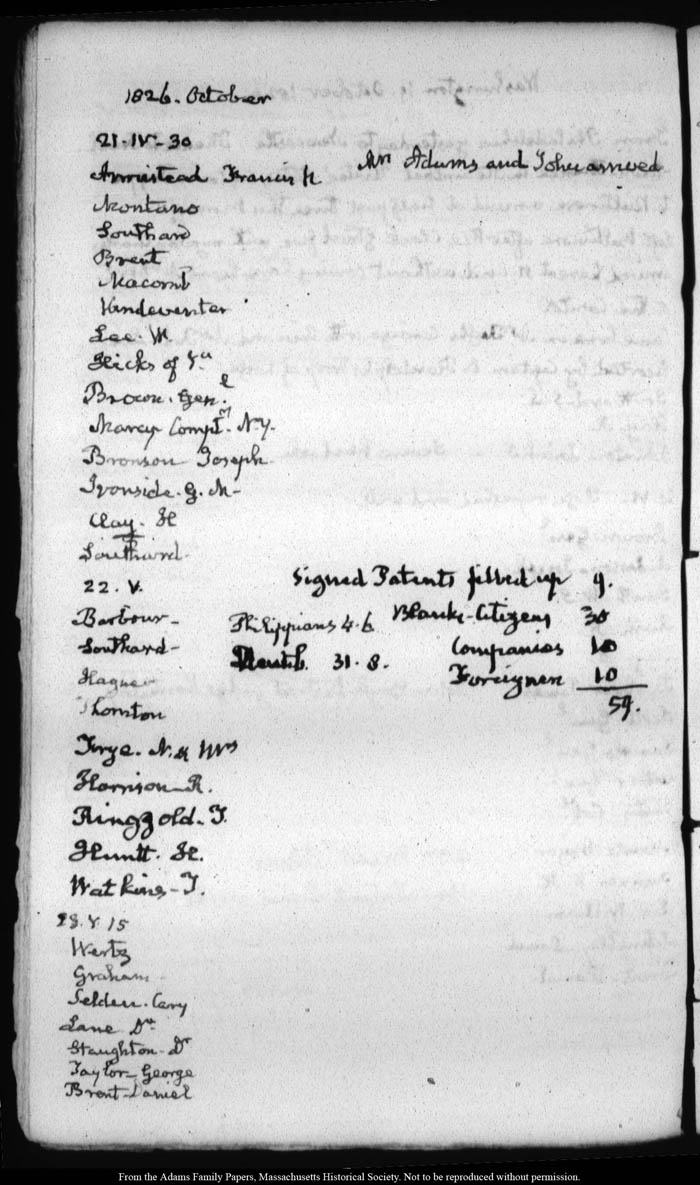 1826. October
21. IV. 30
Armistead Francis
Mrs Adams and John arrived
Montano
Southard
Brent
Macomb
Vandeventer
Lee. W.
Hicks of Va
Brown. Genl.
Marcy Compt. N.Y.
Bronson Joseph.
Ironside. G. M-
Clay. H
Southard-
22. V.
Signed Patents filled up 9.
Barbour-
Philippians 4.6
Blanks-Citizens 30
Southard-
31. 8.
Companies 10
Hague
Foreigners 10
59.
Thornton
Frye. N. & Mrs
Harrison-R.
Ringgold. T.
Huntt. H.
Watkins-T.
23. V. 15
Wertz
Graham-
Selden. Cary
Lane Dr
Staughton-Dr
Taylor-George
Brent-Daniel
From the Adams Family Papers, Massachusetts Historical Society. Not to be reproduced without permission.